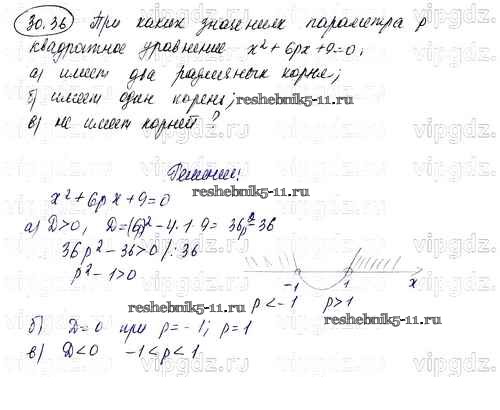 30.36 При каких значениях параметра p
квадратное уравнение x²+6px+9=0:
а) имеет два различных корня;
б) имеет один корень;
reshebnik5-11.ru
в) не имеет корней?
Решение:
reshebnik5-11.ru
x²+6px+9=0
а) D>0, D=(6p)²-4·1·9=36p²-36
36p²-36>0 /:36
p²-1>0
-1 1 x
p<-1 p>1
reshebnik5-11.ru
б) D=0 при p=-1; p=1
в) D<0 -1<p<1
reshebnik5-11.ru
vipgdz.
vipgdz.
vipgdz.
vipgdz.
vipgdz.
vipgdz.
vipgdz.